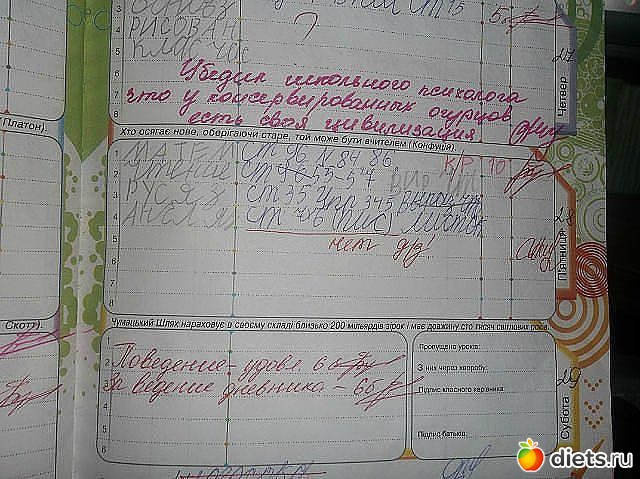 РИСОВАН
КЛАС ЧАС
5
Четвер
27
Убедил школьного психолога
что у консервированных огурцов
есть своя цивилизация
Платон).
Хто осягає нове, оберігаючи старе, той може бути вчителем (Конфуцій).
МАТЕМ СТ 96 N 84 86
КР 10
ЧТЕНИЕ СТ 55-57
РУС ЯЗ СТ 35 Упр 345
АНГЛ ЯЗ СТ 46 (ПИС) ЛИСТОК
нет д/з!
28
П'ятниця
Скотт).
Чумацький Шлях нараховує в своєму складі близько 200 мільярдів зірок і має довжину сто тисяч світлових років.
Поведение - удовл. 6б
За ведение дневника - 6б
Пропущено уроків:
З них через хворобу:
Підпис класного керівника:
Підпис батьків:
29
Субота
diets.ru